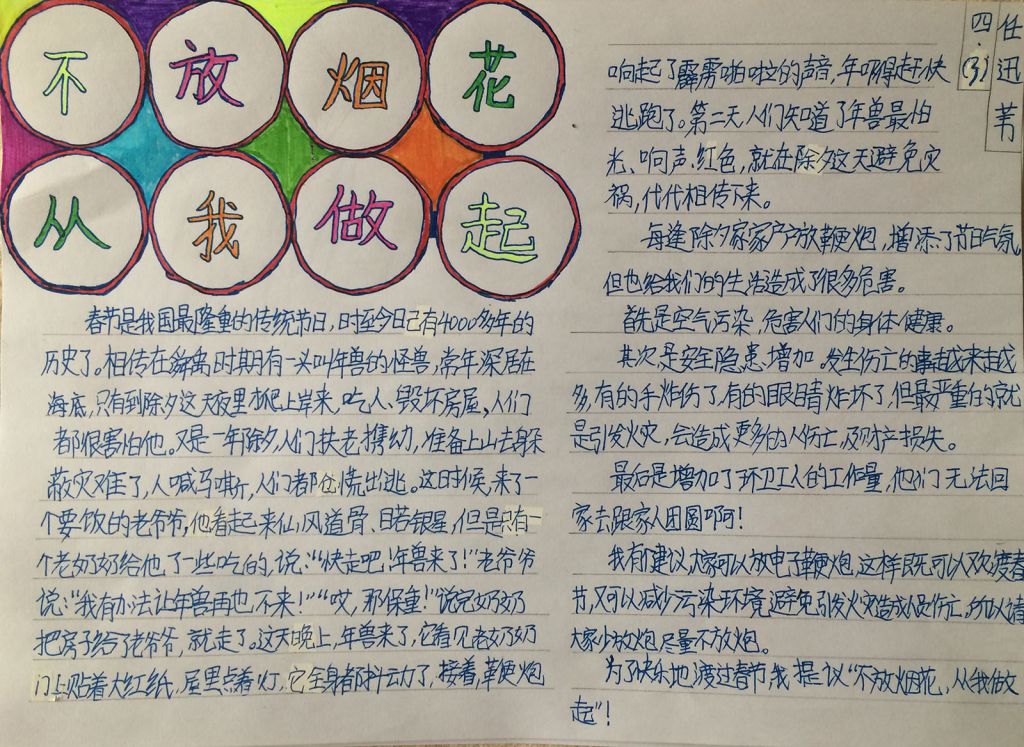 不放烟花
从我做起
春节是我国最隆重的传统节日,时至今日己有4000多年的
历史了。相传在舜禹时期有一头叫年兽的怪兽,常年深居在
海底,只有到除夕这天夜里才爬上岸来,吃人、毁坏房屋,人们
都很害怕他。又是一年除夕,人们扶老携幼,准备上山去躲
蔽灾难了,人喊马嘶,人们都仓慌出逃。这时候,来了一
个要饭的老爷爷,他看起来仙风道骨、目若银星,但是只有一
个老奶奶给他了一些吃的,说:“快走吧!年兽来了!”老爷爷
说:“我有办法让年兽再也不来!”“哎,那保重!”说完奶奶
把房子给了老爷爷,就走了。这天晚上,年兽来了,它看见老奶奶
门上贴着大红纸,屋里点着灯,它全身都抖动了,接着,鞭炮
四(3)
任迅苇
响起了霹雳啪啦的声音,年吓得赶快
逃跑了。第二天人们知道了年兽最怕
光、响声、红色,就在除夕这天避免灾
祸,代代相传下来。
每逢除夕家家户户放鞭炮,增添了节日气氛,
但也给我们的生活造成了很多危害。
首先是空气污染,危害人们的身体健康。
其次是安全隐患增加。发生伤亡的事越来越
多,有的手炸伤了,有的眼睛炸坏了,但最严重的就
是引发火灾,会造成更多的人伤亡,及财产损失。
最后是增加了环卫工人的工作量,他们无法回
家去跟家人团圆啊!
我有个建议,大家可以放电子鞭炮,这样既可以欢度春
节,又可以减少污染环境,避免引发火灾造成人员伤亡,所以请
大家少放炮,尽量不放炮。
为了快乐地渡过春节,我提议“不放烟花,从我做
起”!